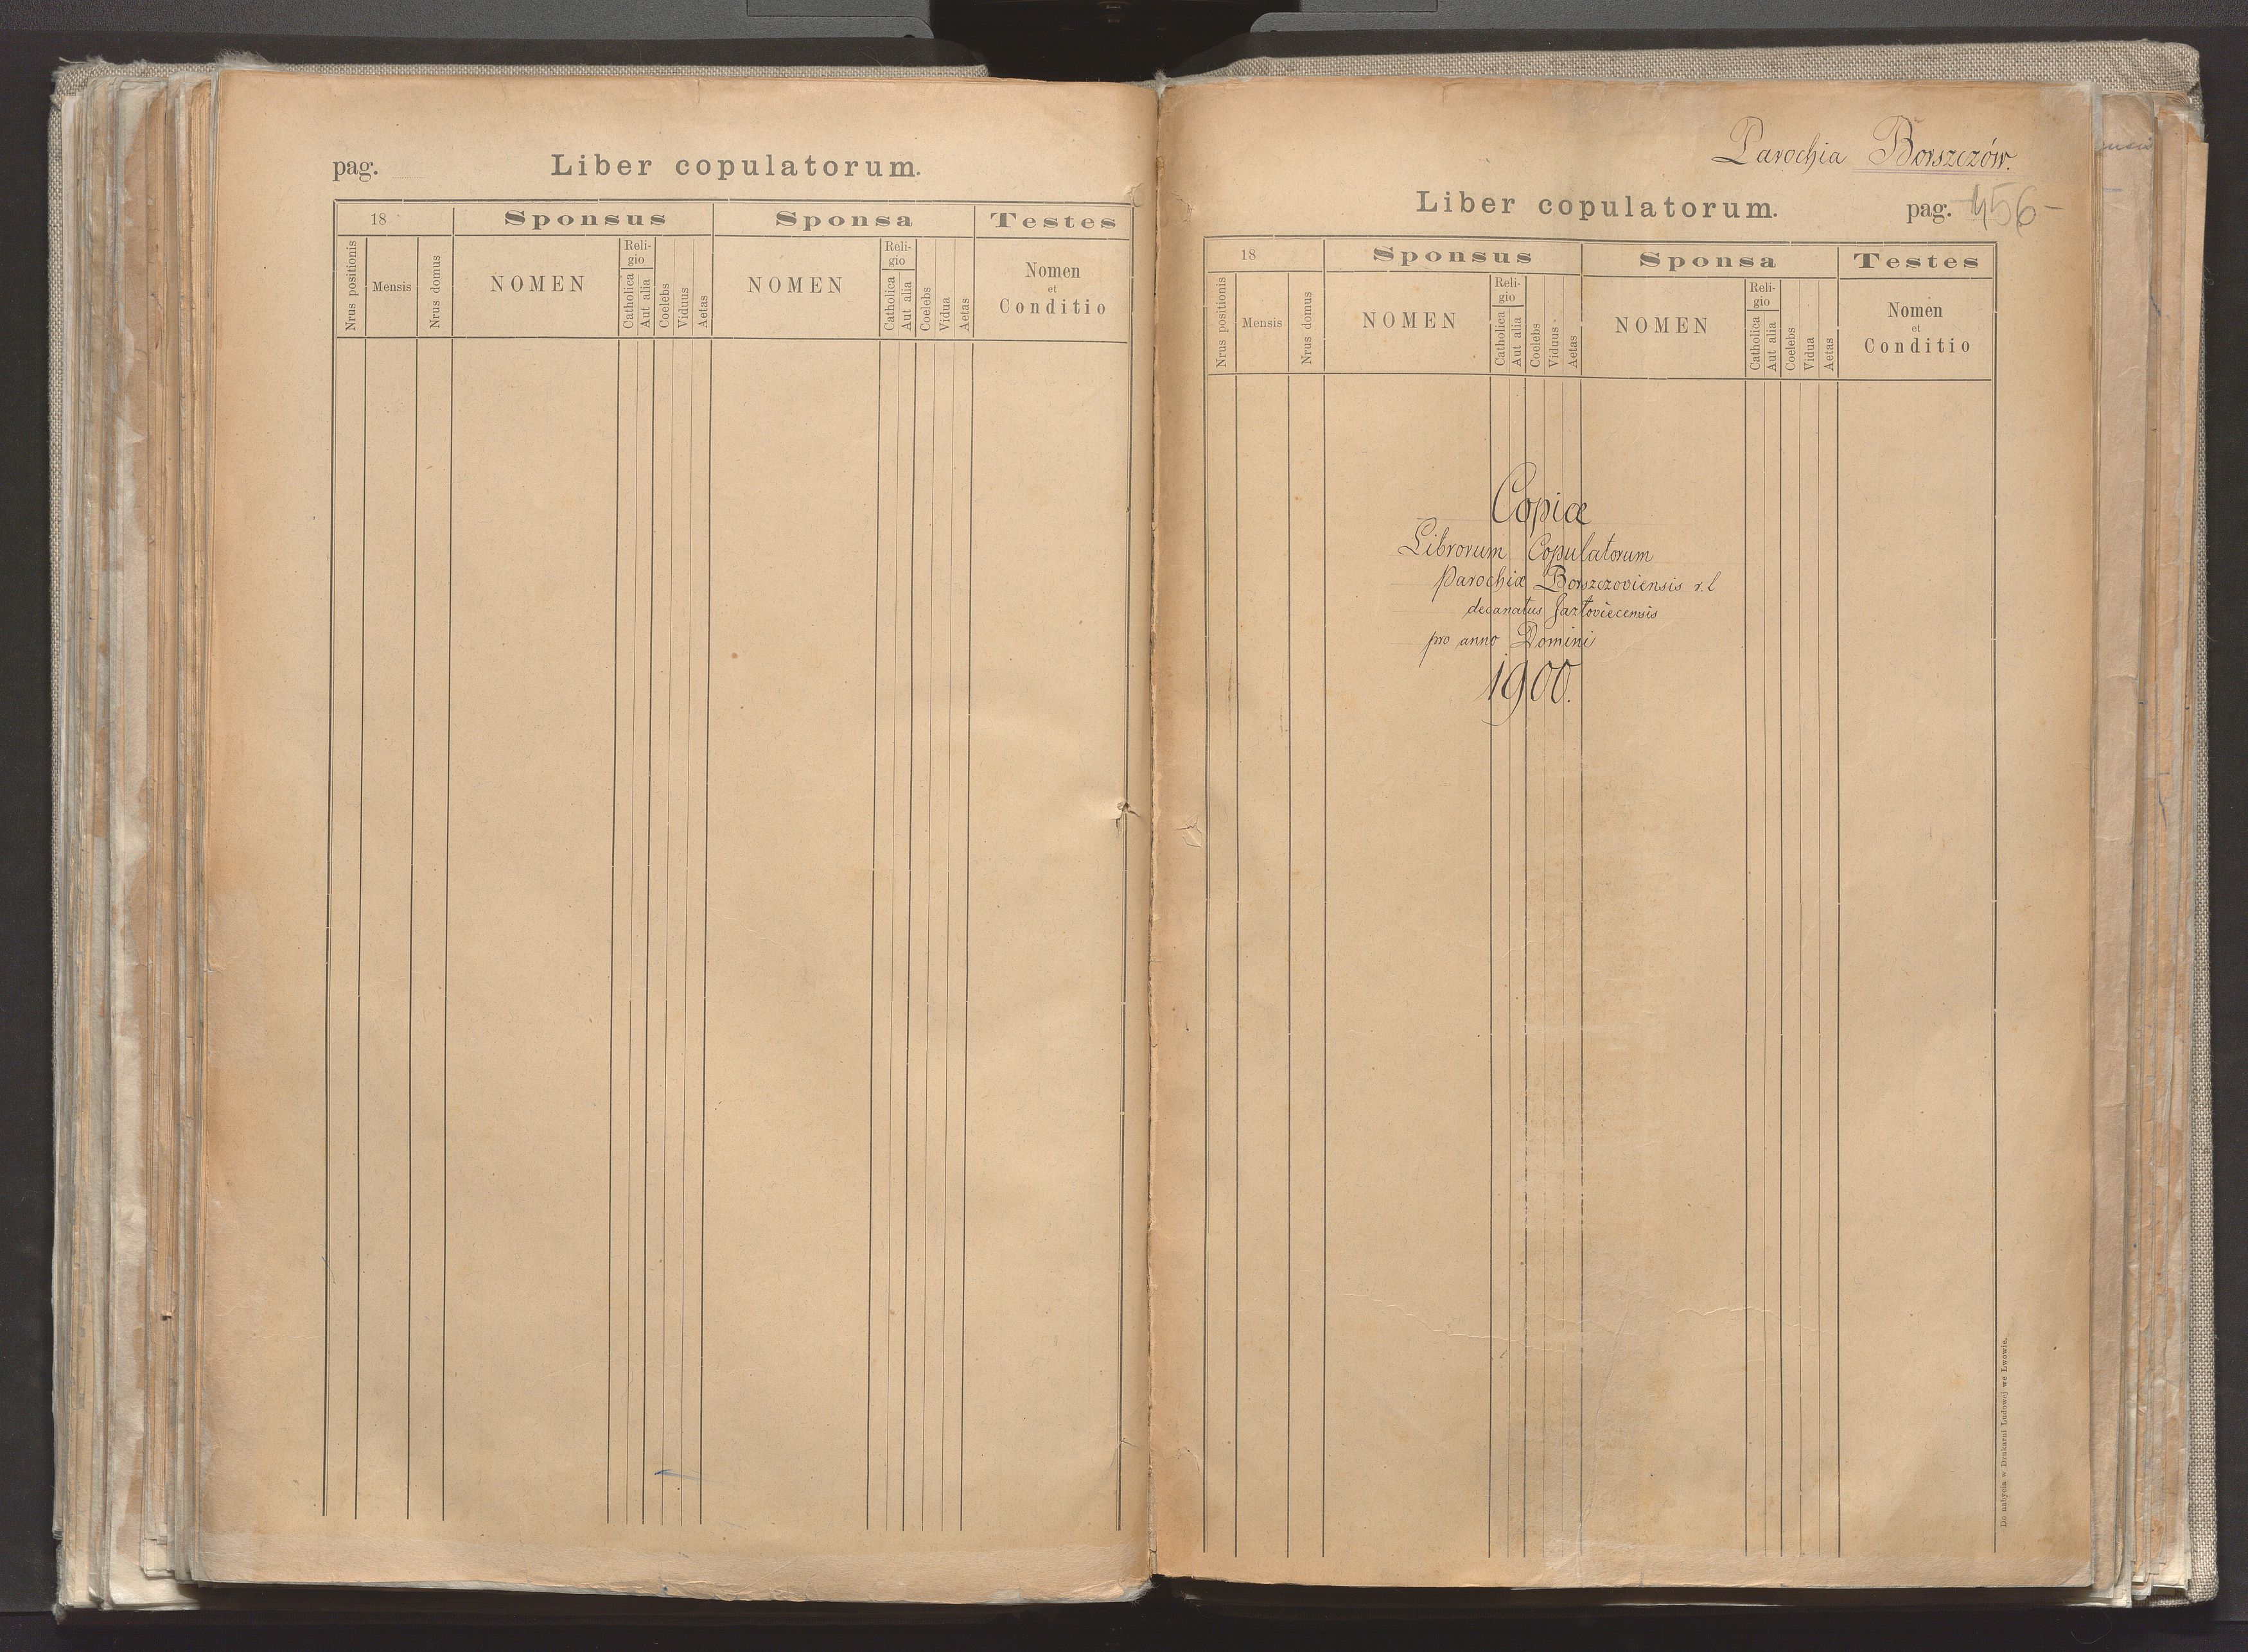 pag.
Liber copulatorum.
18
Sponsus
Sponsa
Testes
Nrus positionis
Mensis
Nrus domus
NOMEN
Religio
Catholica
Aut alia
Coelebs
Viduus
Aetas
NOMEN
Religio
Catholica
Aut alia
Coelebs
Vidua
Aetas
Nomen
et
Conditio
Parochia Borszczów.
Liber copulatorum.
pag. 156
18
Sponsus
Sponsa
Testes
Nrus positionis
Mensis
Nrus domus
NOMEN
Religio
Catholica
Aut alia
Coelebs
Viduus
Aetas
NOMEN
Religio
Catholica
Aut alia
Coelebs
Vidua
Aetas
Nomen
et
Conditio
Copiæ
Librorum Copulatorum
parochiæ Borszczoviensis r. l
decanatus Jazłoviecensis
pro anno Domini
1900.
Do nabycia w Drukarni Ludowej we Lwowie.